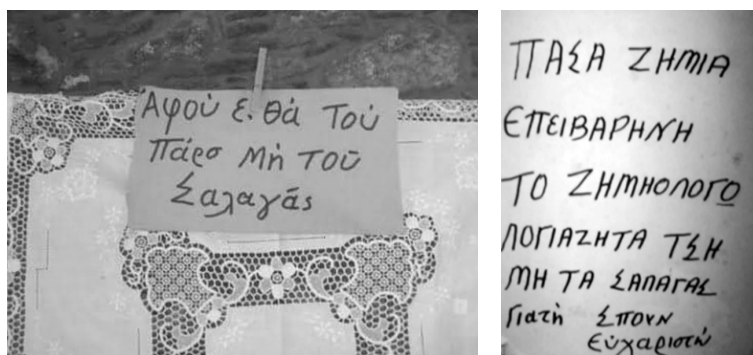 Ἀφού ε. θά Τού
Πάρσ Μή Τού
Σαλαγάς
ΠΑΣΑ ΖΗΜΙΑ
ΕΠΕΙΒΑΡΗΝΗ
ΤΟ ΖΗΜΗΟΛΟΓΟ
ΛΟΓΙΑΖΗΤΑ ΤΣΗ
ΜΗ ΤΑ ΣΑΛΑΓΑΣ
Γιατή ΣΠΟΥΝ
Εὐχαριστώ